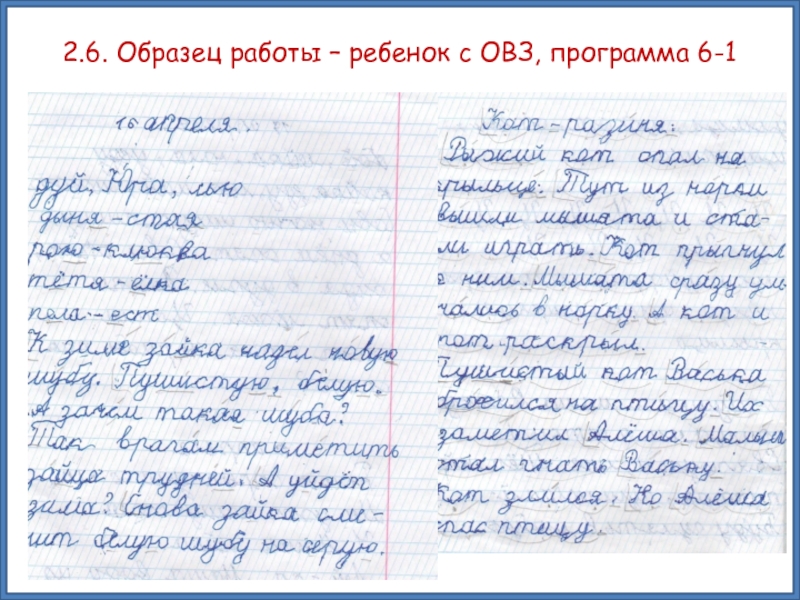 2.6. Образец работы – ребенок с ОВЗ, программа 6-1
16 апреля.
дуй, Юра, лью
дыня - стая
рою - клюква
тётя - ёлка
пела - ест
К зиме зайка надел новую
шубу. Пушистую, белую.
А зачем такая шуба?
Так врагам приметить
зайца трудней. А уйдёт
зима? Снова зайка сме-
нит белую шубу на серую.
Кот - разиня.
Рыжий кот спал на
крыльце. Тут из норки
вышли мышата и ста-
ли играть. Кот прыгнул
к ним. Мышата сразу ум-
чались в норку. А кот и
рот раскрыл.
Пушистый кот Васька
бросился на птицу. Их
заметил Алёша. Малыш
стал гнать Ваську.
Кот злился. Но Алёша
спас птицу.